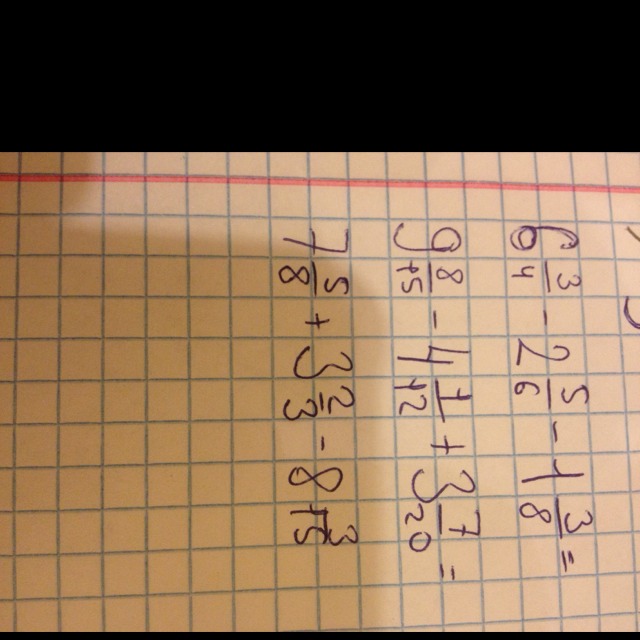 6 3/4 - 2 5/6 - 1 3/8 =
9 8/15 - 4 1/12 + 3 7/20 =
7 5/8 + 3 2/3 - 8 3/15